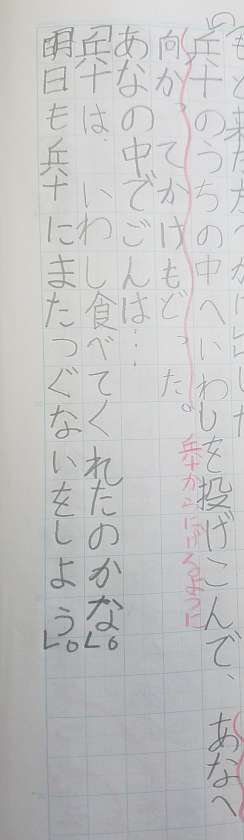 兵十のうちの中へいわしを投げこんで、あなへ
向かってかけもどった。
兵十からにげるように
あなの中でごんは…
「兵十は、いわし食べてくれたのかな。」
「明日も兵十にまたつぐないをしよう。」